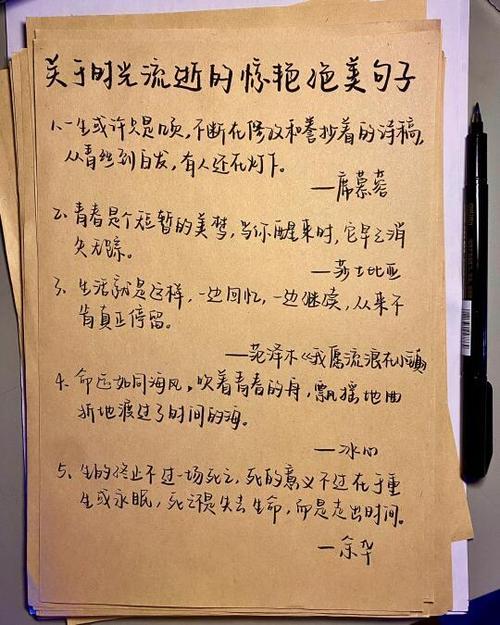 关于时光流逝的惊艳绝美句子
1、一生或许只是几页,不断在修改和誊抄着的诗稿,
从青丝到白发,有人还在灯下。
—席慕蓉
2、青春是个短暂的美梦,当你醒来时,它早已消
失无踪。
—莎士比亚
3、生活就是这样,一边回忆,一边继续,从来不
肯真正停留。
—范泽木《我愿流浪在小镇》
4、命运如同海风,吹着青春的舟,飘摇地曲
折地渡过了时间的海。
—冰心
5、生的终止不过一场死亡,死的意义不过在于重
生或永眠,死亡不是失去生命,而是走出时间。
—余华